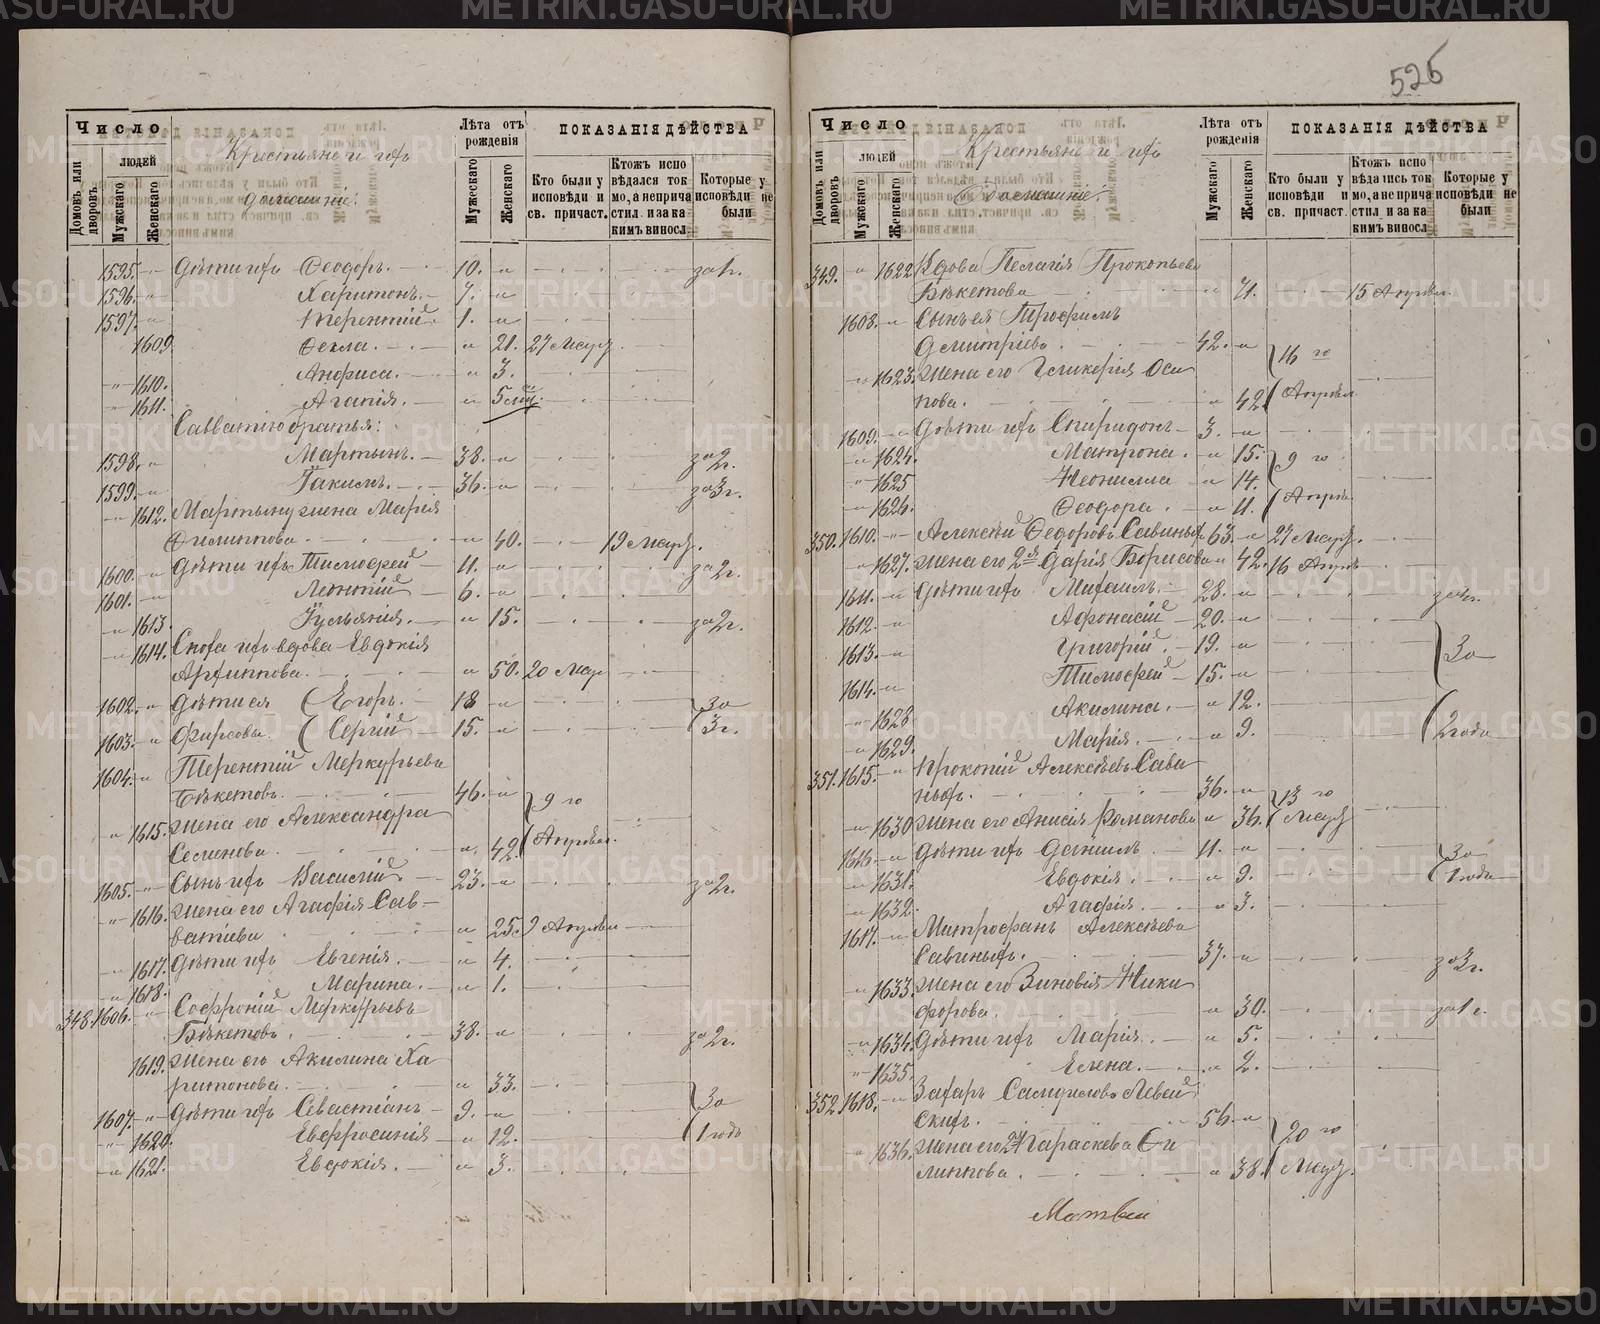 526
Число
Домовъ или дворовъ.
людей
Мужскаго
Женскаго
Крестьяне и ихъ
домашніе:
Лѣта отъ рожденія
Мужскаго
Женскаго
ПОКАЗАНІЯ ДѢЙСТВА
Кто были у исповѣди и св. причаст.
Ктожъ исповѣдался токмо, а не причастил. и за каким винослов.
Которые у исповѣди не были
1595. Дѣти ихъ Ѳеодоръ. 10. за 1г.
1596. Харитонъ. 7.
1597. Терентій 1.
1609 Ѳекла. 21. 27 Мар.
1610. Анфиса. 3.
1611. Агапія. 5 мц.
Савватію братья:
1598. Мартынъ. 38. за 2г.
1599. Іакимъ. 36. за 3г.
1612. Мартыну жена Марія
Филиппова. 40. 19 Мар.
1600. Дѣти ихъ Тимофей 11. за 2г.
1601. Леонтій 6.
1613. Іульянія. 15. за 2г.
1614. Сноха ихъ вдова Евдокія
Архиппова. 50. 20 Мар
1602. Дѣти ея Егоръ. 18 За
1603. Фирсовы. Сергій 15. 3г.
1604. Терентій Меркурьевъ
Бѣкетовъ. 46. 9 го
1615. Жена его Александра
Семенова. 42. Апрѣля.
1605. Сынъ ихъ Василій 23. за 2г.
1616. Жена его Агафія Сав-
ватіева 25. 9 Апрѣля
1617. Дѣти ихъ Евгенія. 4.
1618. Марина. 1.
348. 1606. Софроній Меркурьевъ
Бѣкетовъ. 38. за 2г.
1619. Жена его Акилина Ха
ритонова. 33. За
1607. Дѣти ихъ Севастіанъ 9.
1620. Евфросинія 12. 1 годъ
1621. Евдокія. 3.
Число
Домовъ или дворовъ.
людей
Мужскаго
Женскаго
Крестьяне и ихъ
домашніе:
Лѣта отъ рожденія
Мужскаго
Женскаго
ПОКАЗАНІЯ ДѢЙСТВА
Кто были у исповѣди и св. причаст.
Ктожъ исповѣдались токмо, а не причастил. и за каким винослов.
Которые у исповѣди не были
349. 1622 Вдова Пелагія Прокопьева
Бѣкетова 71. 15 Апрѣля.
1608. Сынъ ея Трофимъ
Дмитріевъ 42. 16 го
1623. Жена его Гликерія Оси
пова. 42. Апрѣля
1609. Дѣти ихъ Спиридонъ 3.
1624. Матрона. 15. 9 го
1625 Неонилла 14.
1626. Ѳеодора. 11. Апрѣля.
350. 1610. Алексѣй Ѳедоровъ Савиныхъ 63. 27 Мар.
1627. Жена его 2я Дарія Борисова 42. 16 Апрѣля
1611. Дѣти ихъ Михаилъ. 28.
1612. Афонасій 20.
1613. Григорій. 19. За
1614. Тимофей 15.
1628 Акилина. 12.
1629. Марія. 9. 2 года
351. 1615. Прокопій Алексѣевъ Сави
ныхъ. 36. 13 го
1630 Жена его Анисія Романова 36. Мар
1616. Дѣти ихъ Даніилъ 11. За
1631. Евдокія. 9. 1 годъ
1632. Агафія. 3.
1617. Митрофанъ Алексѣевъ
Савиныхъ. 37. за 3г.
1633. Жена его Зиновія Ники
форова. 30. за 1 г.
1634. Дѣти ихъ Марія. 5.
1635. Елена. 2.
352. 1618. Захаръ Самуиловъ Левен
скихъ. 56. 20 го
1636. Жена его 2я Параскева Фи
липпова. 38. Мар.
Матвѣй
METRIKI.GASO-URAL.RU